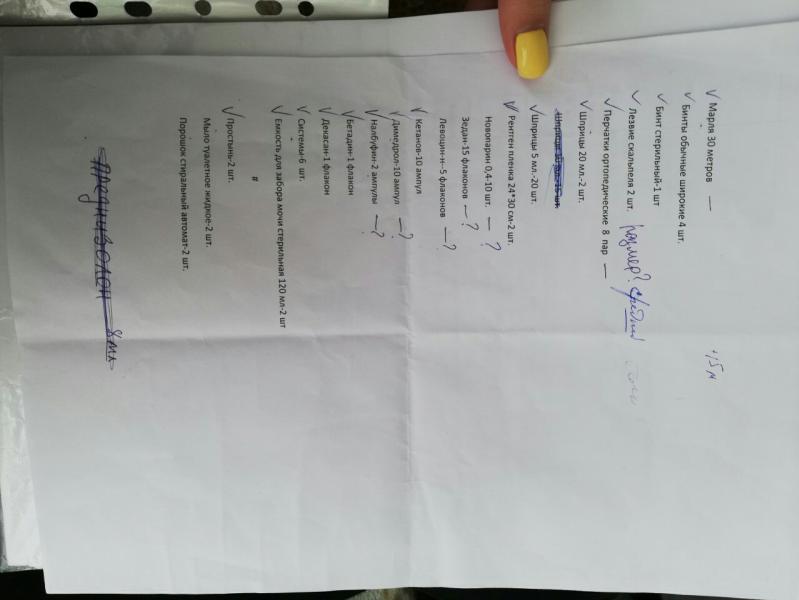 √ Марля 30 метров — 15 м
√ Бинты обычные широкие 4 шт.
√ Бинт стерильный-1 шт
√ Лезвие скальпеля 2 шт. размер? средний
√ Перчатки ортопедические 8 пар —
√ Шприцы 20 мл.-2 шт.
√ Шприцы 5 мл.-20 шт.
√ Рентген пленка 24*30 см-2 шт.
Новопарин 0,4-10 шт. — ?
Зедан-15 флаконов — ?
Левоцин-н--5 флаконов — ?
√ Кетанов-10 ампул
√ Димедрол-10 ампул — ?
√ Налбуфин-2 ампулы — ?
√ Бетадин-1 флакон
√ Декасан-1 флакон
√ Системы-6 шт.
√ Емкость для забора мочи стерильная 120 мл-2 шт
#
√ Простынь-2 шт.
Мыло туалетное жидкое-2 шт.
Порошок стиральный автомат-2 шт.
преднизолон — 8 мл